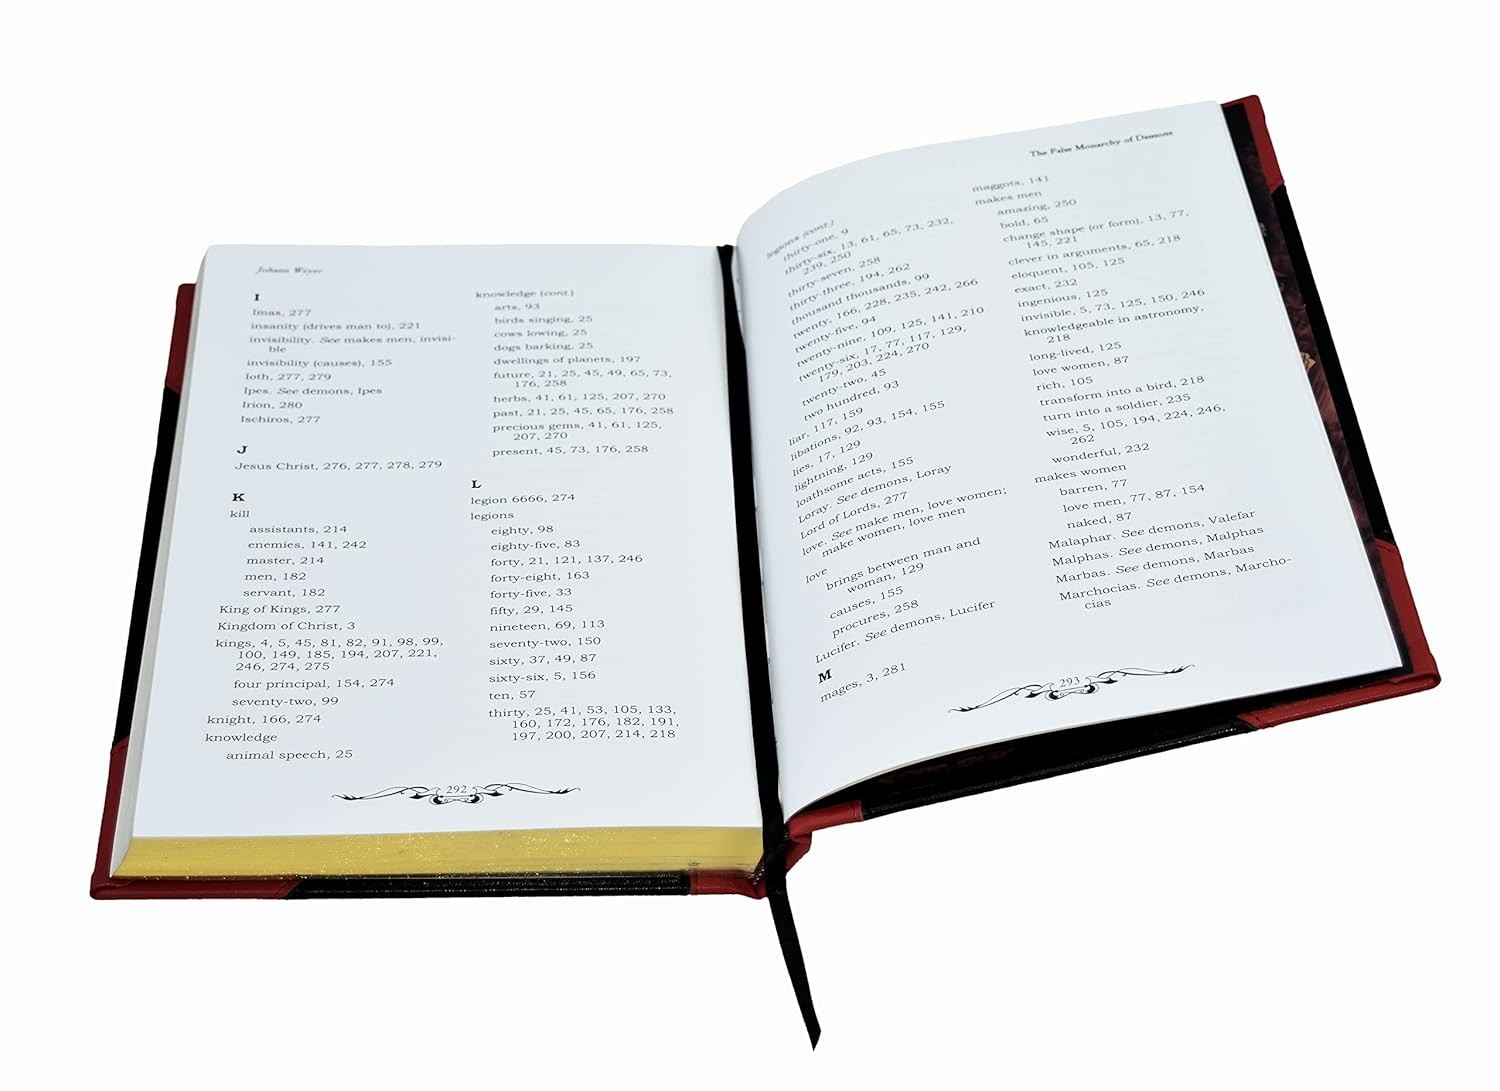 Johann Weyer
I
Imas, 277
insanity (drives man to), 221
invisibility. See makes men, invisi-
ble
invisibility (causes), 155
Ioth, 277, 279
Ipes. See demons, Ipes
Irion, 280
Ischiros, 277
J
Jesus Christ, 276, 277, 278, 279
K
kill
assistants, 214
enemies, 141, 242
master, 214
men, 182
servant, 182
King of Kings, 277
Kingdom of Christ, 3
kings, 4, 5, 45, 81, 82, 91, 98, 99,
100, 149, 185, 194, 207, 221,
246, 274, 275
four principal, 154, 274
seventy-two, 99
knight, 166, 274
knowledge
animal speech, 25
knowledge (cont.)
arts, 93
birds singing, 25
cows lowing, 25
dogs barking, 25
dwellings of planets, 197
future, 21, 25, 45, 49, 65, 73,
176, 258
herbs, 41, 61, 125, 207, 270
past, 21, 25, 45, 65, 176, 258
precious gems, 41, 61, 125,
207, 270
present, 45, 73, 176, 258
L
legion 6666, 274
legions
eighty, 98
eighty-five, 83
forty, 21, 121, 137, 246
forty-eight, 163
forty-five, 33
fifty, 29, 145
nineteen, 69, 113
seventy-two, 150
sixty, 37, 49, 87
sixty-six, 5, 156
ten, 57
thirty, 25, 41, 53, 105, 133,
160, 172, 176, 182, 191,
197, 200, 207, 214, 218
292
The False Monarchy of Demons
legions (cont.)
thirty-one, 9
thirty-six, 13, 61, 65, 73, 232,
239, 250
thirty-seven, 258
thirty-three, 194, 262
thousand thousands, 99
twenty, 166, 228, 235, 242, 266
twenty-five, 94
twenty-nine, 109, 125, 141, 210
twenty-six, 17, 77, 117, 129,
179, 203, 224, 270
twenty-two, 45
two hundred, 93
liar, 117, 159
libations, 92, 93, 154, 155
lies, 17, 129
lightning, 129
loathsome acts, 155
Loray. See demons, Loray
Lord of Lords, 277
love. See make men, love women;
make women, love men
love
brings between man and
woman, 129
causes, 155
procures, 258
Lucifer. See demons, Lucifer
M
mages, 3, 281
maggots, 141
makes men
amazing, 250
bold, 65
change shape (or form), 13, 77,
145, 221
clever in arguments, 65, 218
eloquent, 105, 125
exact, 232
ingenious, 125
invisible, 5, 73, 125, 150, 246
knowledgeable in astronomy,
218
long-lived, 125
love women, 87
rich, 105
transform into a bird, 218
turn into a soldier, 235
wise, 5, 105, 194, 224, 246,
262
wonderful, 232
makes women
barren, 77
love men, 77, 87, 154
naked, 87
Malaphar. See demons, Valefar
Malphas. See demons, Malphas
Marbas. See demons, Marbas
Marchocias. See demons, Marcho-
cias
293